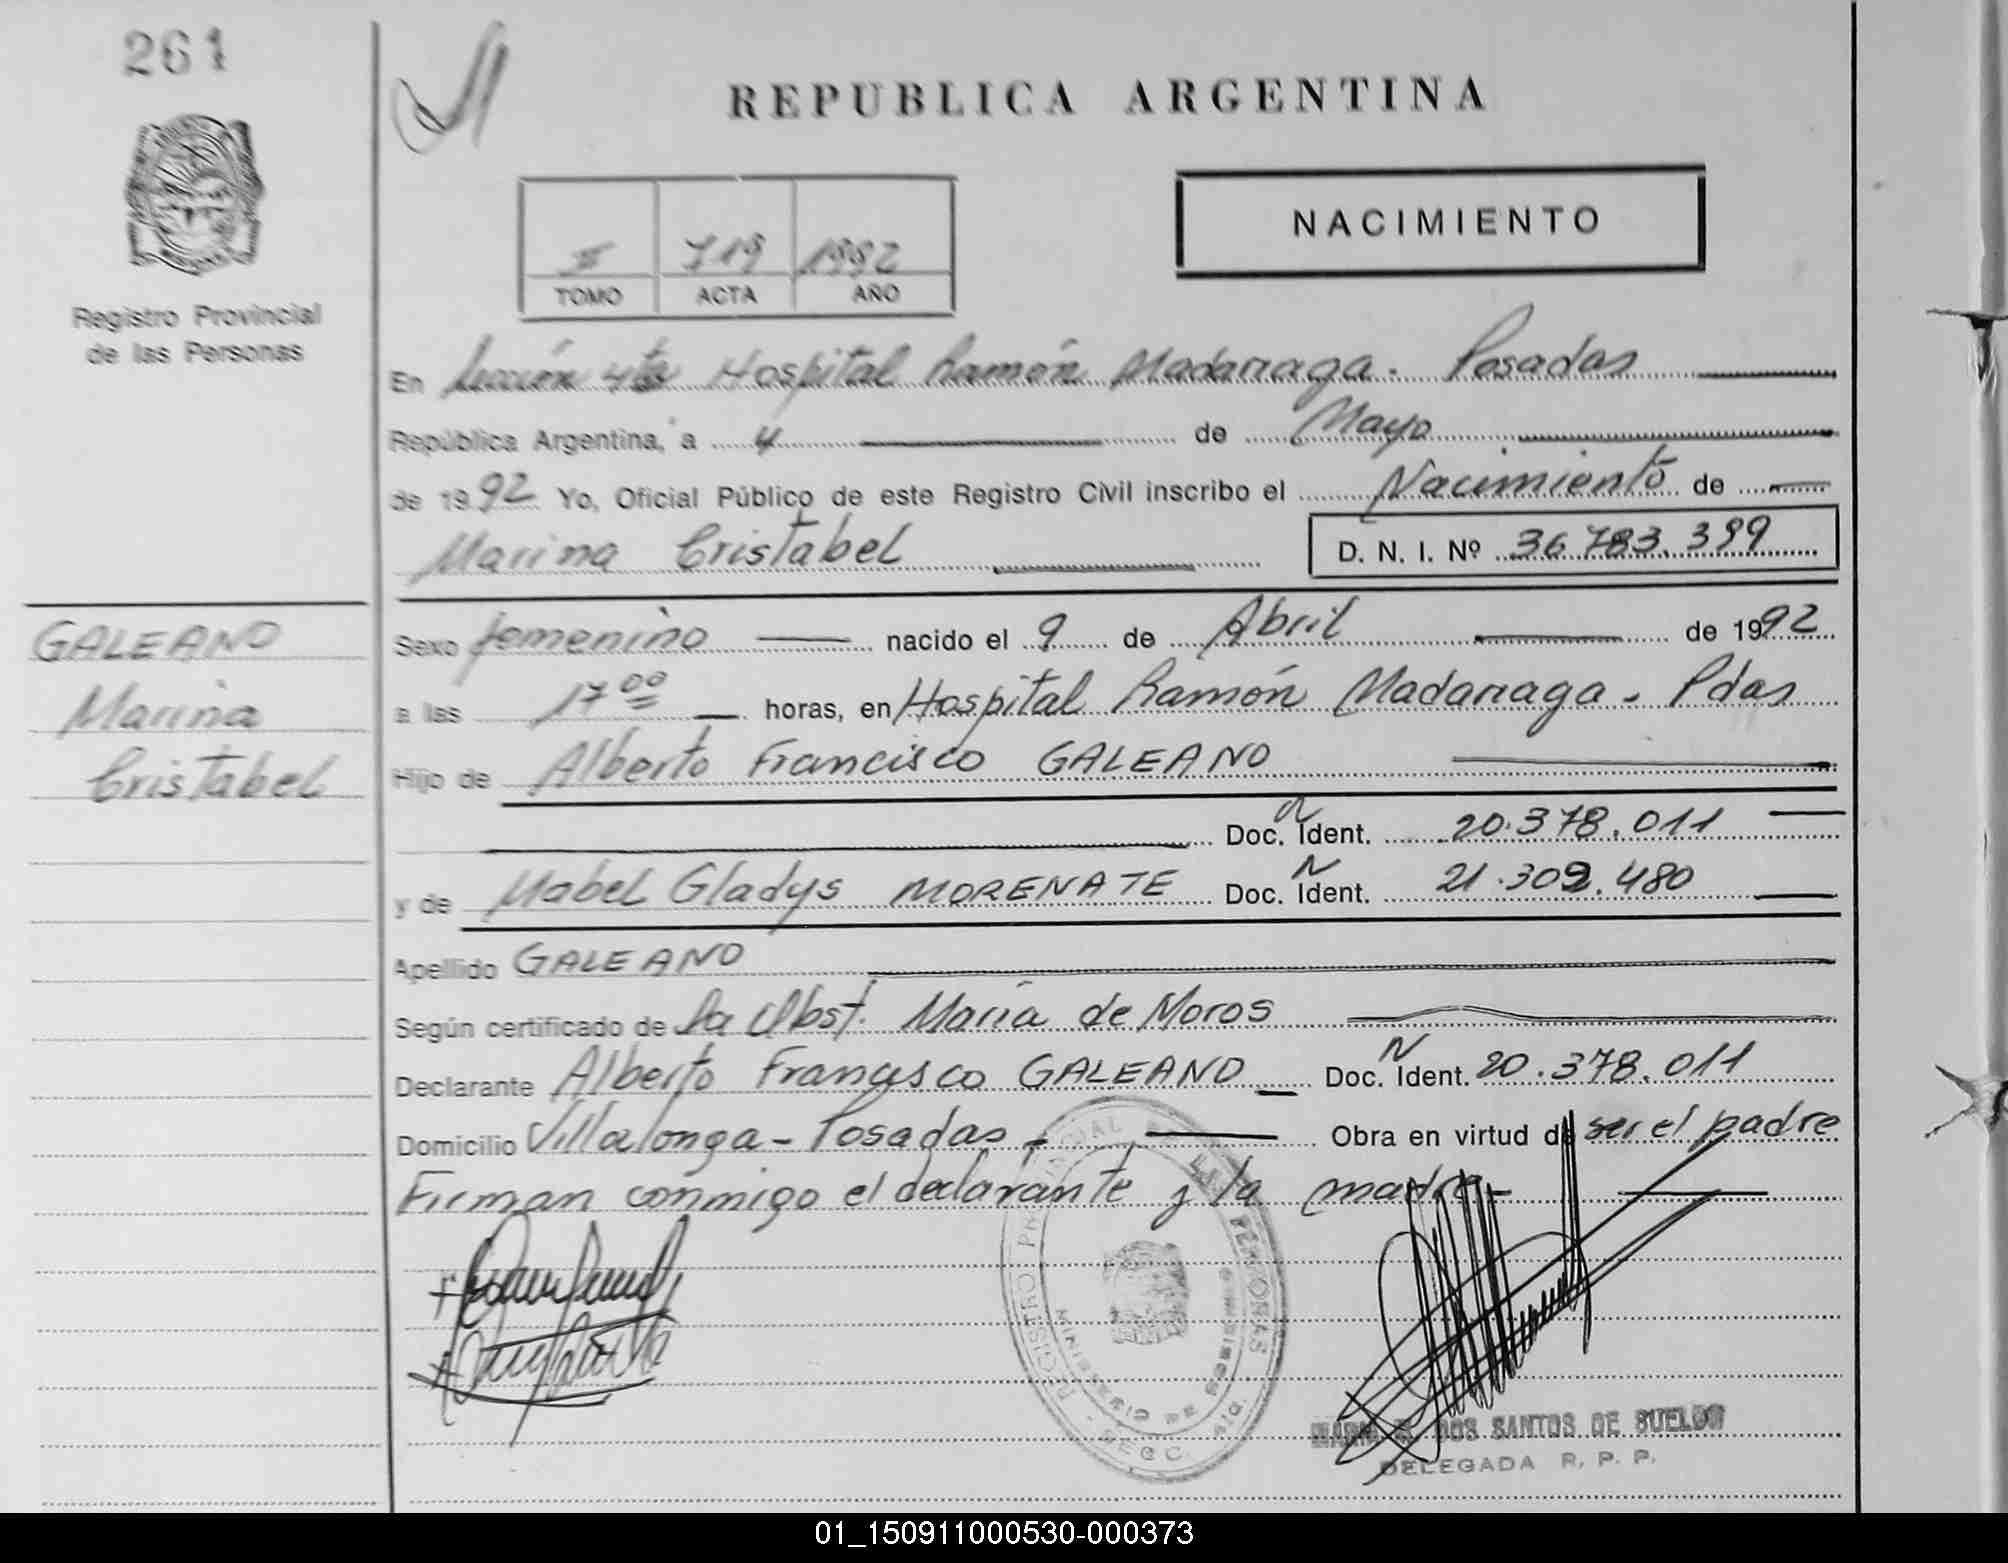 261
REPUBLICA ARGENTINA
NACIMIENTO
II 719 1992
TOMO ACTA AÑO
Registro Provincial
de las Personas
En Sección 4ta Hospital Ramón Madariaga. Posadas
República Argentina, a 4 de Mayo
de 1992 Yo, Oficial Público de este Registro Civil inscribo el Nacimiento de
Marina Cristabel D. N. I. Nº 36.783.399
GALEANO
Marina
Cristabel
Sexo femenino nacido el 9 de Abril de 1992
a las 17 00 horas, en Hospital Ramón Madariaga - Pdas
Hijo de Alberto Francisco GALEANO
Doc. Ident. 20.378.011
y de Mabel Gladys MORENATE Doc. Ident. 21.309.480
Apellido GALEANO
Según certificado de La Obst. María de Moros
Declarante Alberto Francisco GALEANO Doc. Ident. N 20.378.011
Domicilio Villalonga - Posadas - Obra en virtud de ser el padre
Firman conmigo el declarante y la madre -
REGISTRO PROVINCIAL DE LAS PERSONAS
MINISTERIO DE GOBIERNO
DOS SANTOS DE SUELDO
DELEGADA R. P. P.
01_150911000530-000373